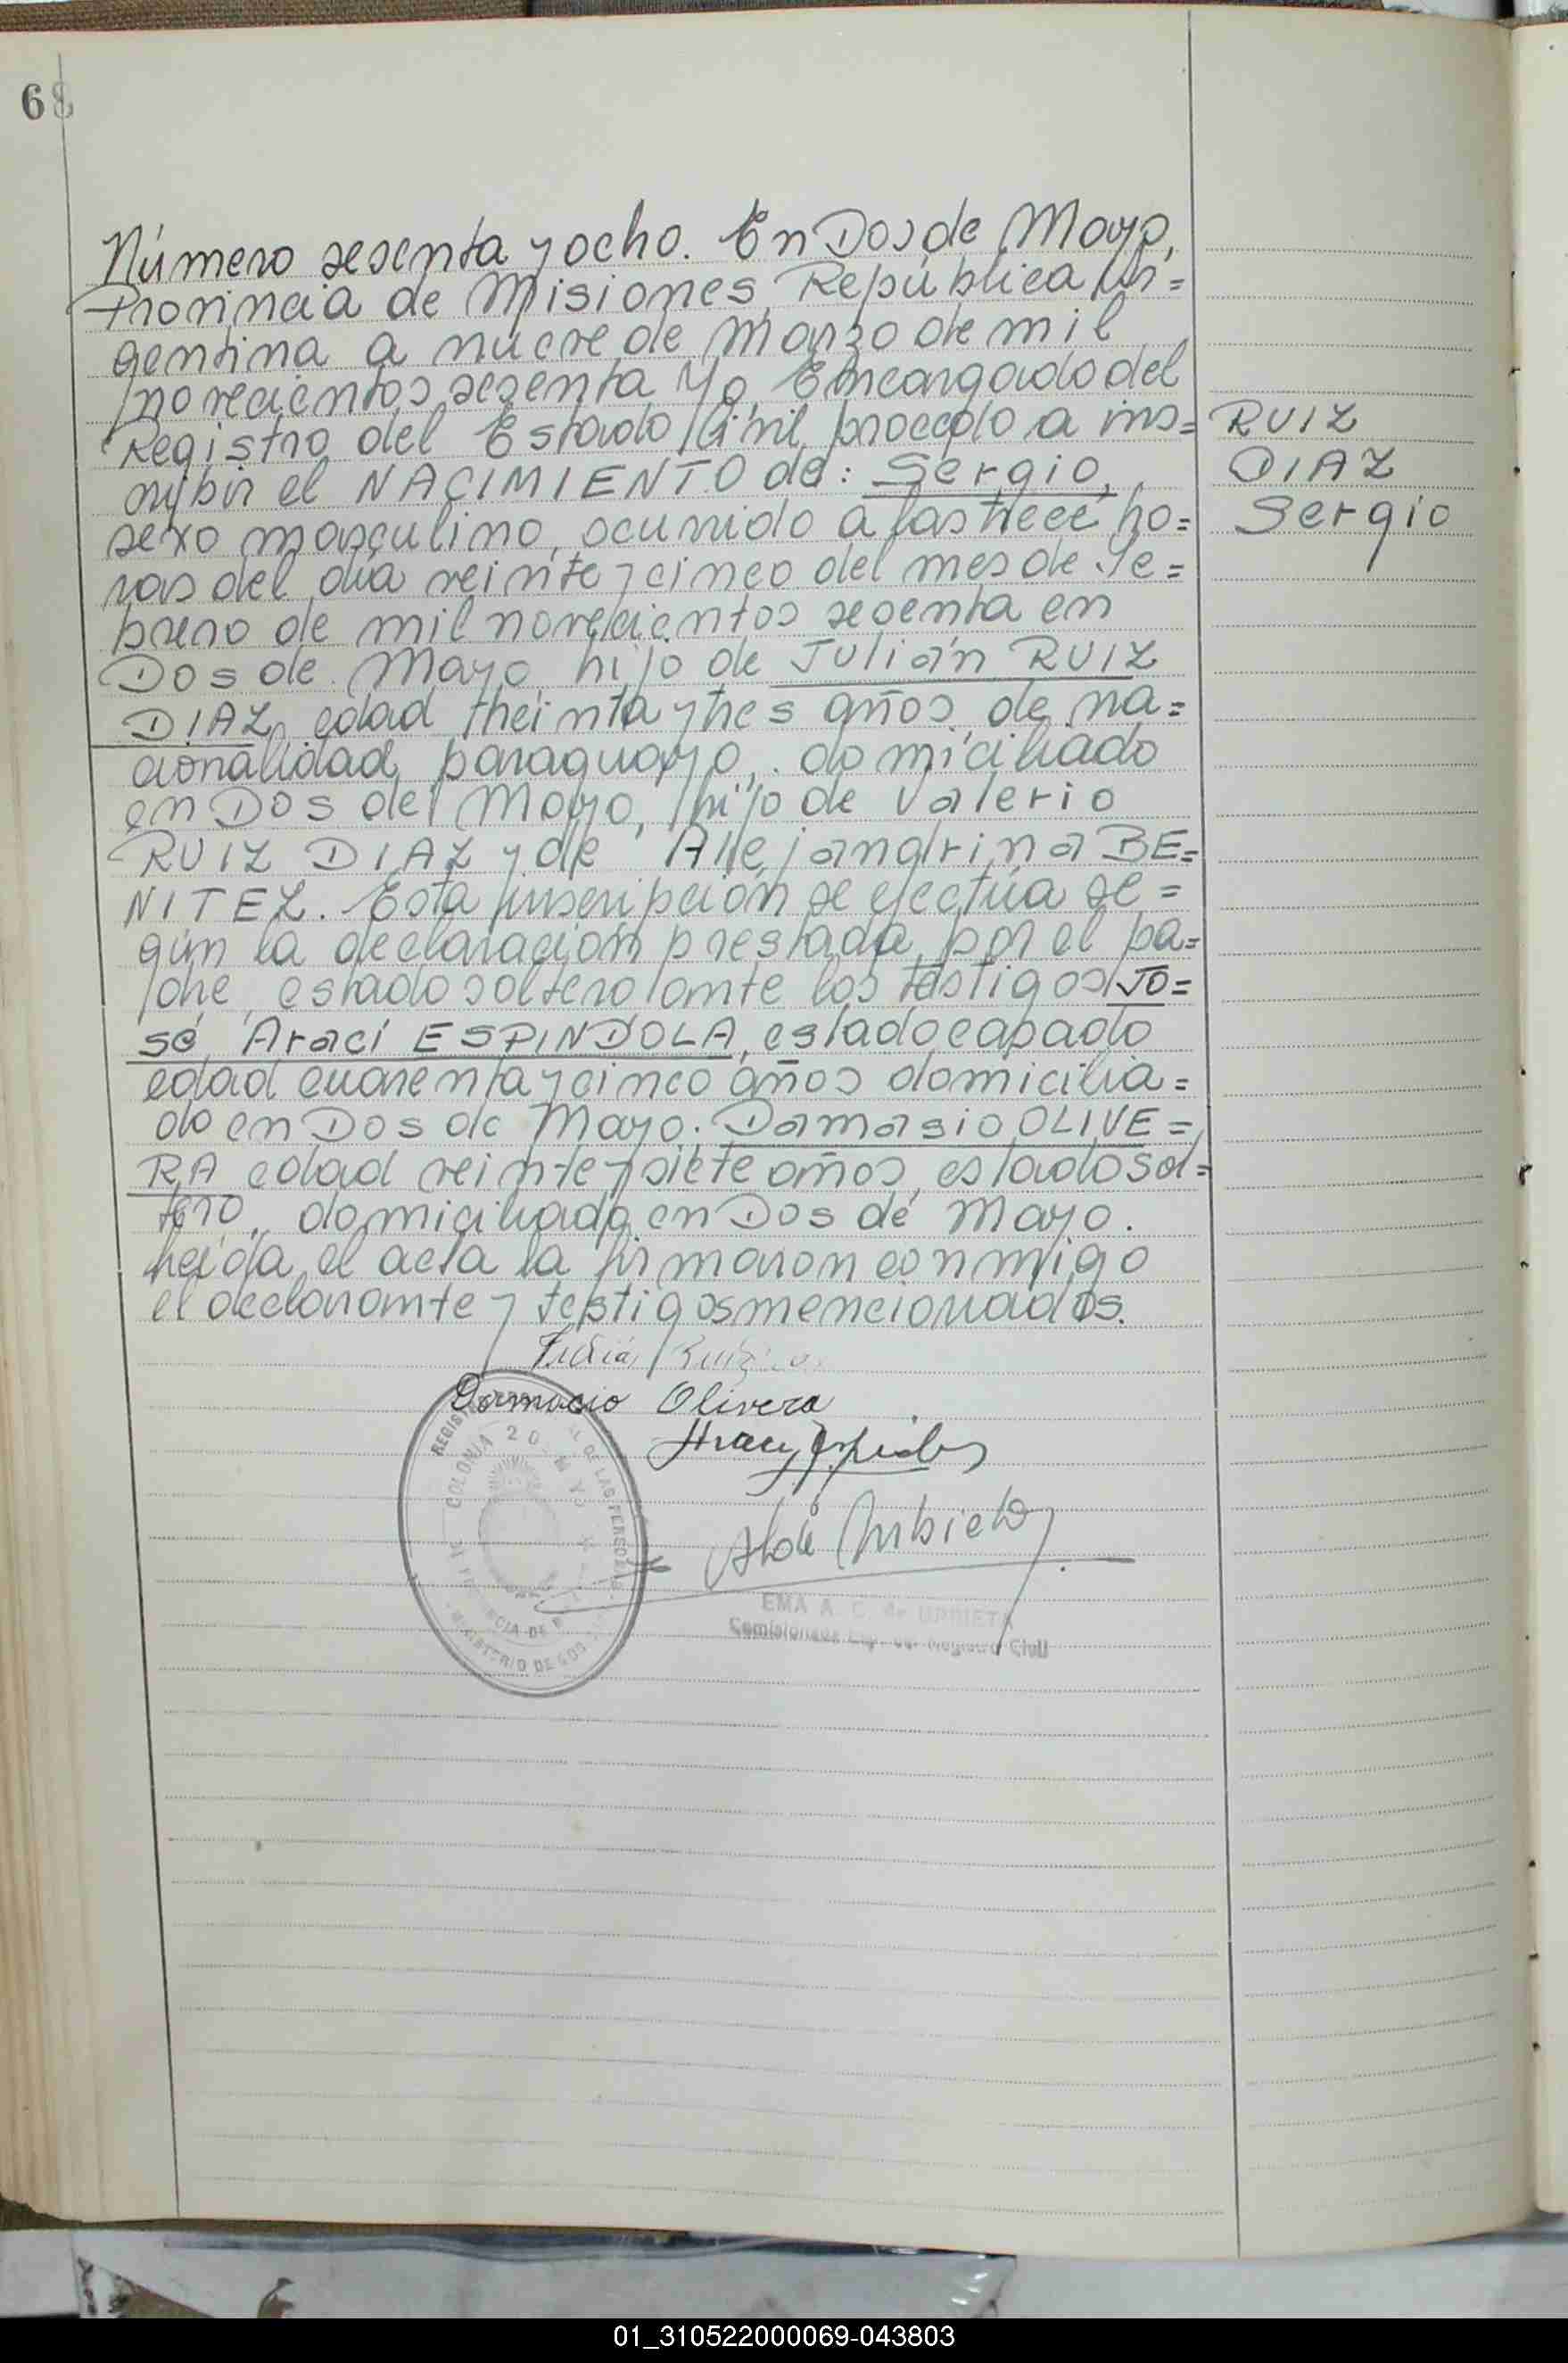 68
Número sesenta y ocho. En Dos de Mayo,
Provincia de Misiones, República Ar=
gentina a nueve de Marzo de mil
novecientos sesenta Yo, Encargado del
Registro del Estado Civil procedo a ins=
cribir el NACIMIENTO de: Sergio,
sexo masculino, ocurrido a las trece ho=
ras del día veinte y cinco del mes de Fe=
brero de mil novecientos sesenta en
Dos de Mayo, hijo de Julián RUIZ
DIAZ, edad treinta y tres años, de na=
cionalidad paraguayo, domiciliado
en Dos de Mayo, hijo de Valerio
RUIZ DIAZ y de Alejandrina BE=
NITEZ. Esta inscripción se efectúa se=
gún la declaración prestada por el pa=
dre, estado soltero ante los testigos JO=
sé Araci ESPINDOLA, estado casado
edad cuarenta y cinco años domicilia=
do en Dos de Mayo. Damasio OLIVE=
RA edad veinte y siete años, estado sol=
tero, domiciliado en Dos de Mayo.
Leída el acta la firmaron conmigo
el declarante y testigos mencionados.
RUIZ
DIAZ
Sergio
Julián Ruiz
Damacio Olivera
Aracy Espindola
Urbieta
REGISTRO DE LAS PERSONAS
COLONIA 2 DE MAYO
PROVINCIA DE
MINISTERIO DE GOB
EMA A. C. de URBIETA
Registro Civil
01_310522000069-043803